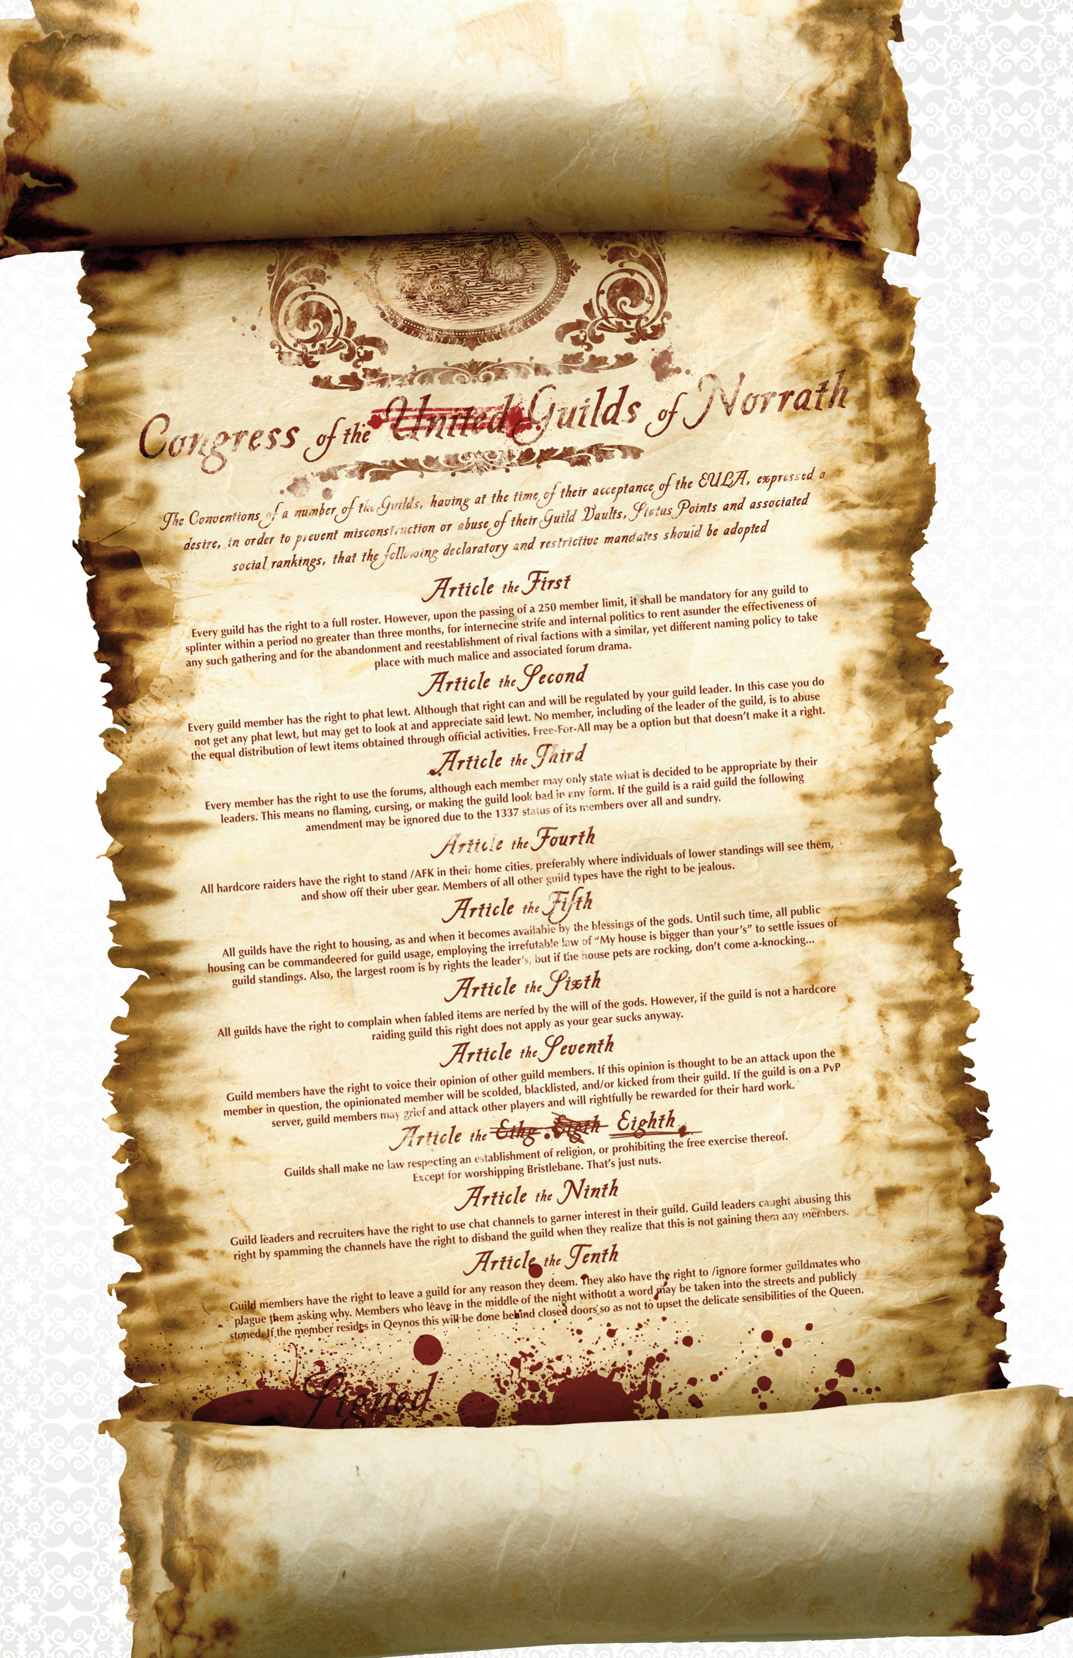 Congress of the United Guilds of Norrath
The Conventions of a number of the Guilds, having at the time of their acceptance of the EULA, expressed a
desire, in order to prevent misconstruction or abuse of their Guild Vaults, Status Points and associated
social rankings, that the following declaratory and restrictive mandates should be adopted
Article the First
Every guild has the right to a full roster. However, upon the passing of a 250 member limit, it shall be mandatory for any guild to
splinter within a period no greater than three months, for internecine strife and internal politics to rent asunder the effectiveness of
any such gathering and for the abandonment and reestablishment of rival factions with a similar, yet different naming policy to take
place with much malice and associated forum drama.
Article the Second
Every guild member has the right to phat lewt. Although that right can and will be regulated by your guild leader. In this case you do
not get any phat lewt, but may get to look at and appreciate said lewt. No member, including of the leader of the guild, is to abuse
the equal distribution of lewt items obtained through official activities. Free-For-All may be a option but that doesn't make it a right.
Article the Third
Every member has the right to use the forums, although each member may only state what is decided to be appropriate by their
leaders. This means no flaming, cursing, or making the guild look bad in any form. If the guild is a raid guild the following
amendment may be ignored due to the 1337 status of its members over all and sundry.
Article the Fourth
All hardcore raiders have the right to stand /AFK in their home cities, preferably where individuals of lower standings will see them,
and show off their uber gear. Members of all other guild types have the right to be jealous.
Article the Fifth
All guilds have the right to housing, as and when it becomes available by the blessings of the gods. Until such time, all public
housing can be commandeered for guild usage, employing the irrefutable law of “My house is bigger than your's” to settle issues of
guild standings. Also, the largest room is by rights the leader's, but if the house pets are rocking, don't come a-knocking...
Article the Sixth
All guilds have the right to complain when fabled items are nerfed by the will of the gods. However, if the guild is not a hardcore
raiding guild this right does not apply as your gear sucks anyway.
Article the Seventh
Guild members have the right to voice their opinion of other guild members. If this opinion is thought to be an attack upon the
member in question, the opinionated member will be scolded, blacklisted, and/or kicked from their guild. If the guild is on a PvP
server, guild members may grief and attack other players and will rightfully be rewarded for their hard work.
Article the Eithg Eigth Eighth
Guilds shall make no law respecting an establishment of religion, or prohibiting the free exercise thereof.
Except for worshipping Bristlebane. That's just nuts.
Article the Ninth
Guild leaders and recruiters have the right to use chat channels to garner interest in their guild. Guild leaders caught abusing this
right by spamming the channels have the right to disband the guild when they realize that this is not gaining them any members.
Article the Tenth
Guild members have the right to leave a guild for any reason they deem. They also have the right to /ignore former guildmates who
plague them asking why. Members who leave in the middle of the night without a word may be taken into the streets and publicly
stoned. If the member resides in Qeynos this will be done behind closed doors so as not to upset the delicate sensibilities of the Queen.
Signed